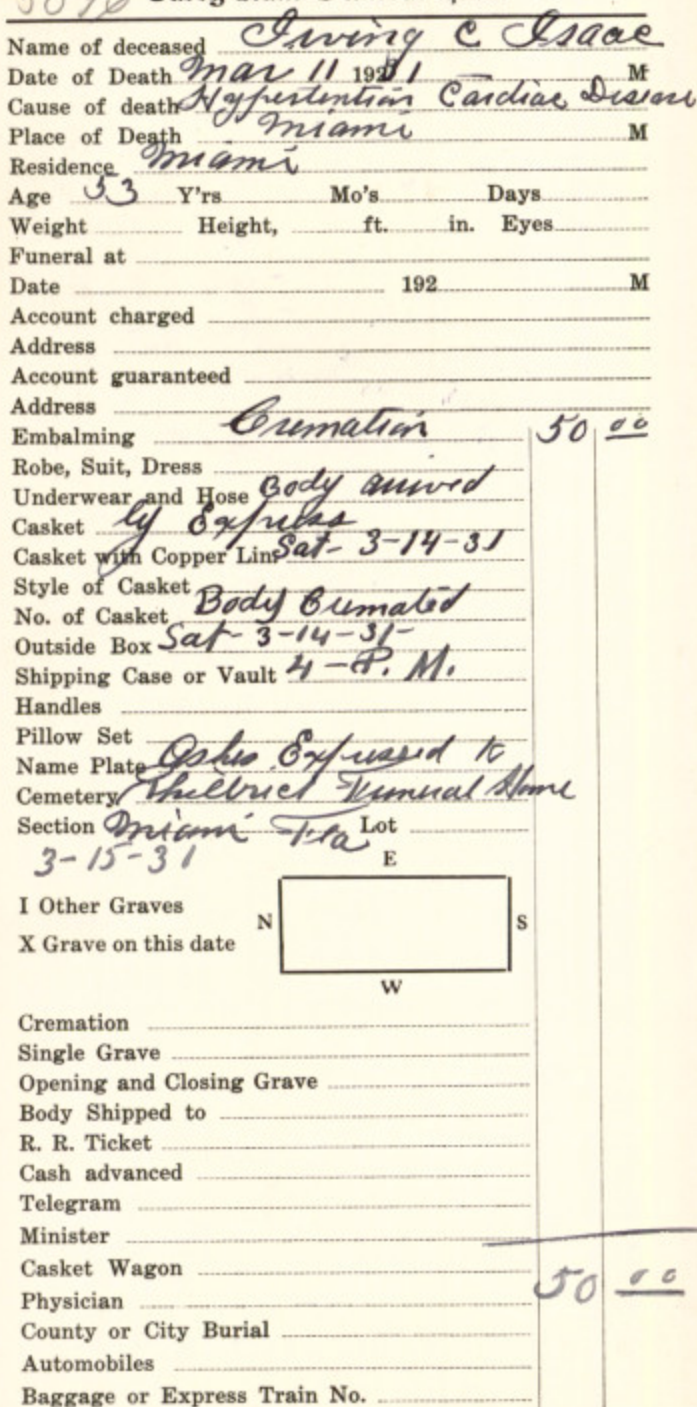 Name of deceased Irving C Isaac
Date of Death Mar 11 1931 M
Cause of death Hypertention Cardiac Disease
Place of Death Miami M
Residence Miami
Age 53 Y'rs Mo's Days
Weight Height, ft. in. Eyes
Funeral at
Date 192 M
Account charged
Address
Account guaranteed
Address
Embalming Cremation 50 00
Robe, Suit, Dress
Underwear and Hose Body arrived
Casket by Express
Casket with Copper Lin Sat- 3-14-31
Style of Casket
No. of Casket Body Cremated
Outside Box Sat- 3-14-31-
Shipping Case or Vault 4-P.M.
Handles
Pillow Set
Name Plate Ashes Expressed to
Cemetery Philbrick Funeral Home
Section Miami Fla Lot
3-15-31
E
I Other Graves
N S
X Grave on this date
W
Cremation
Single Grave
Opening and Closing Grave
Body Shipped to
R. R. Ticket
Cash advanced
Telegram
Minister
Casket Wagon
50 00
Physician
County or City Burial
Automobiles
Baggage or Express Train No.